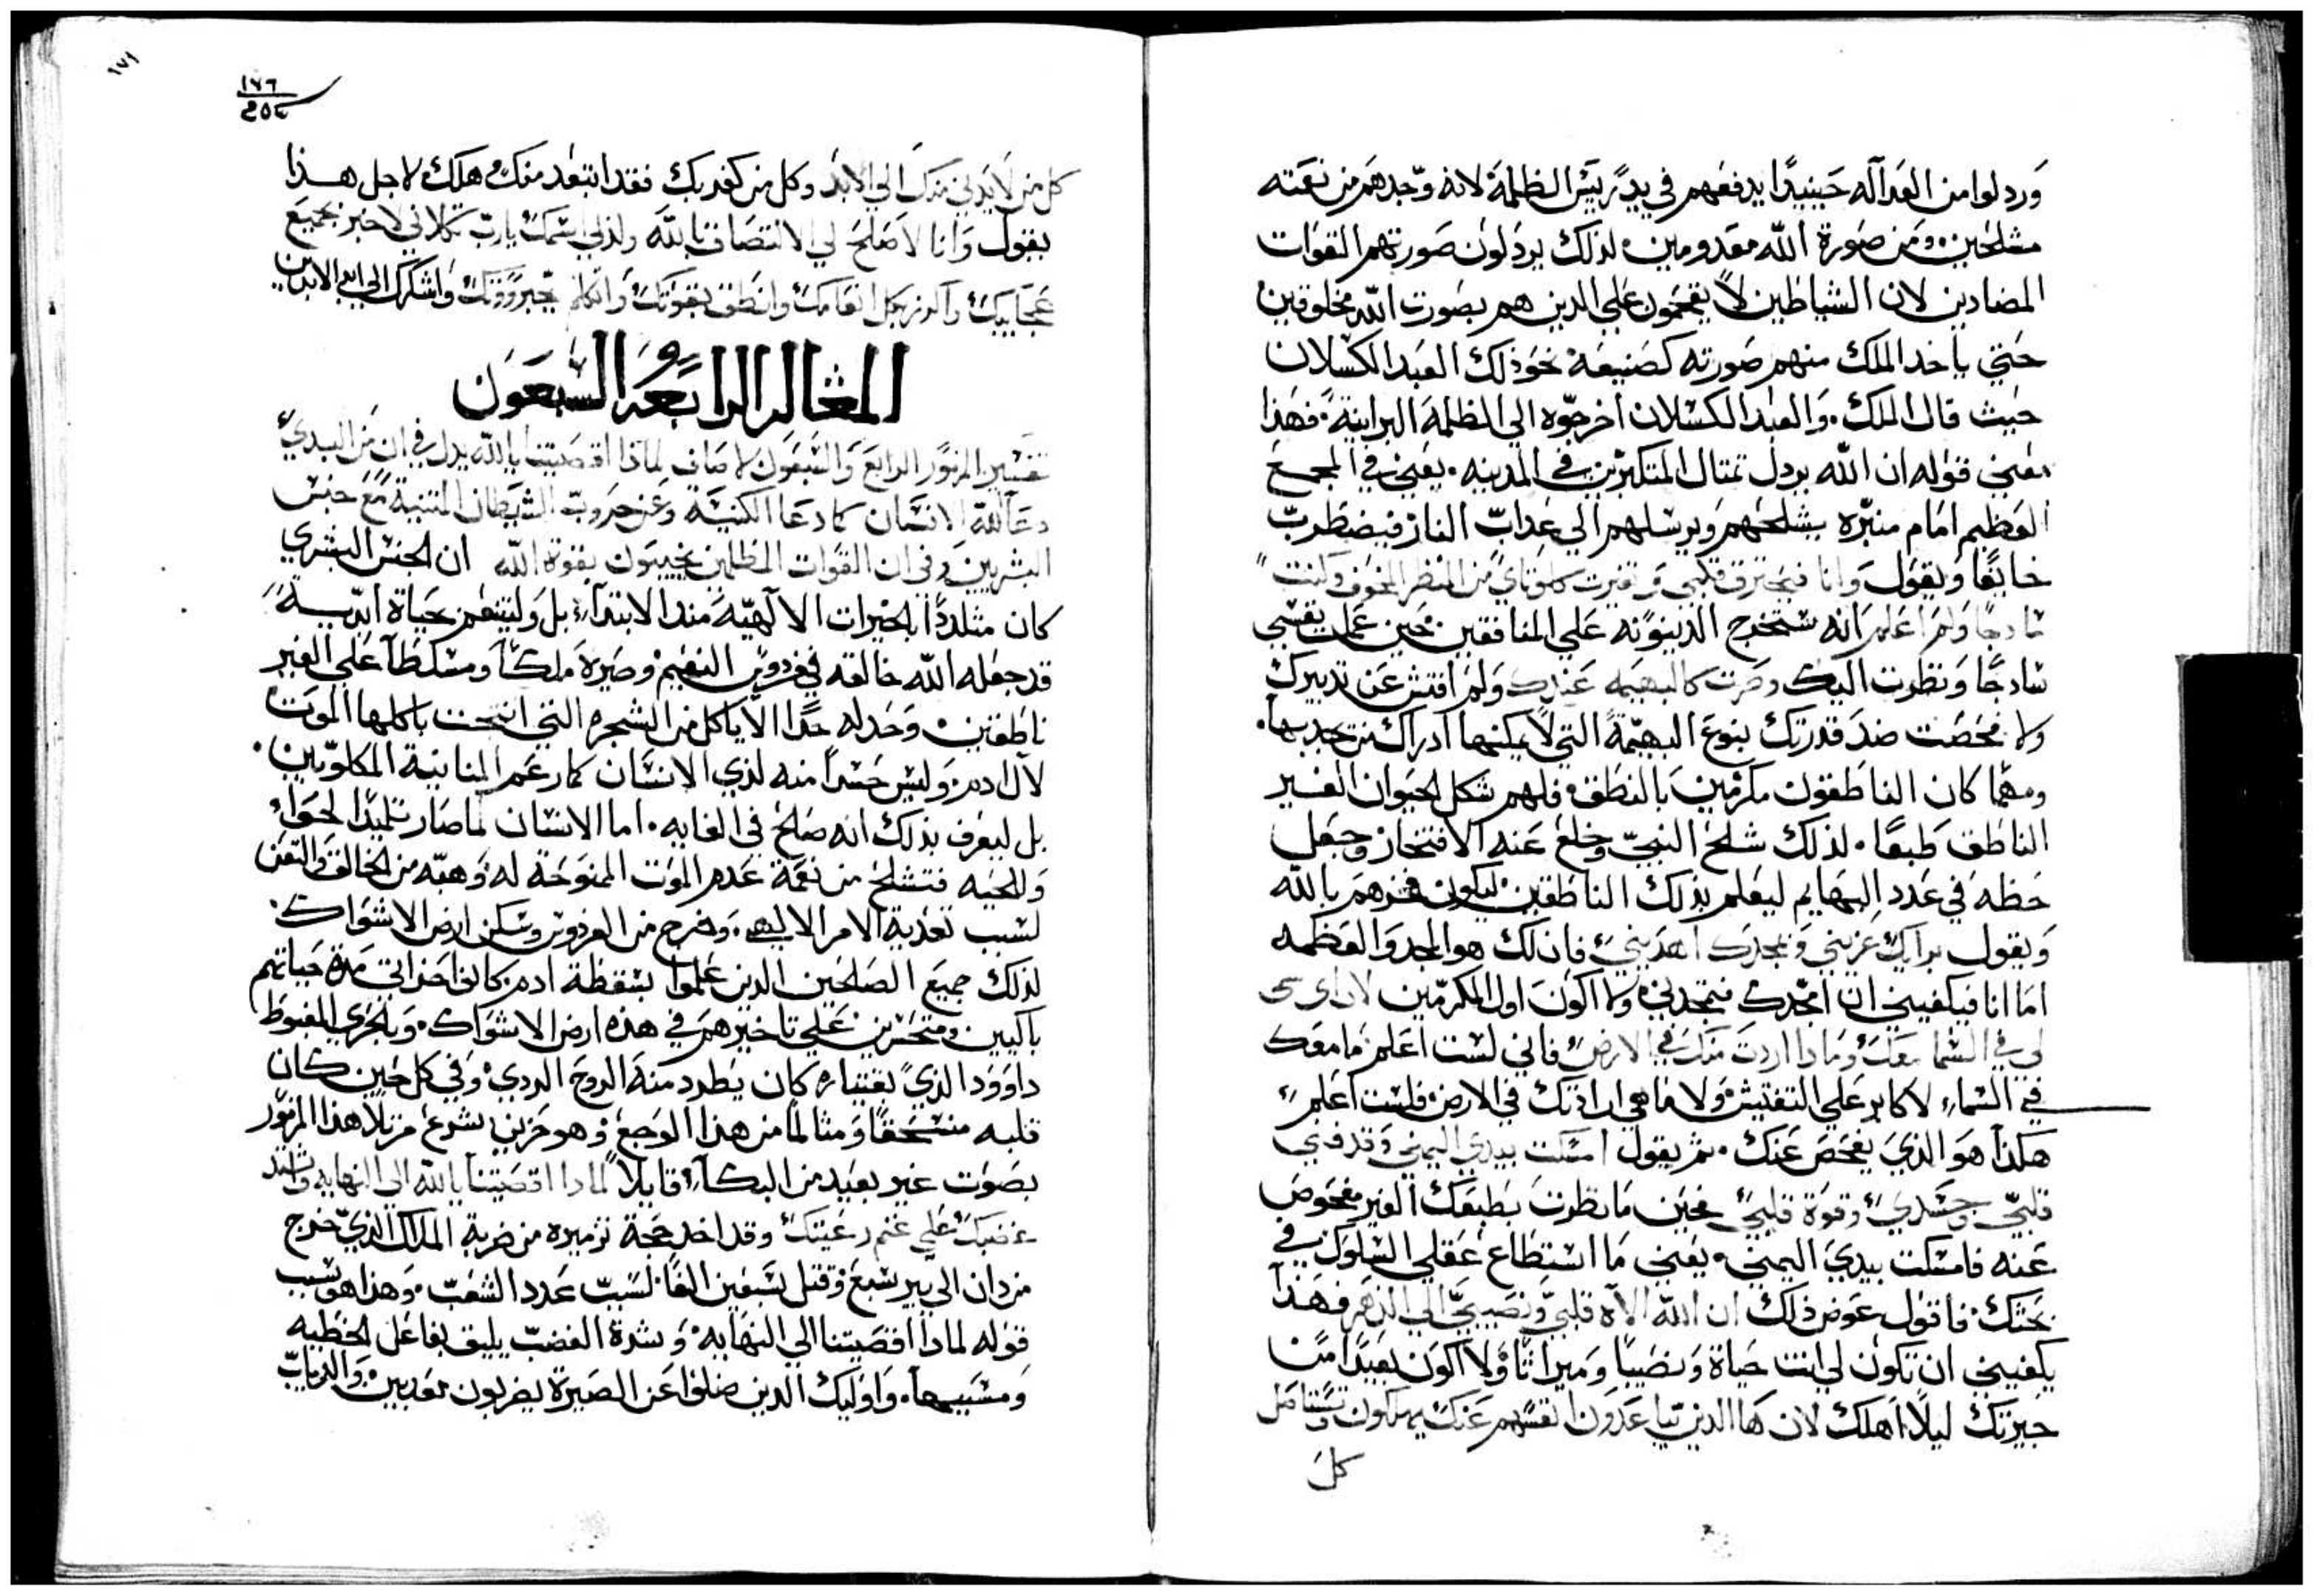 وردلوا من العدآله حينيدًا يدفعهم في يد رييس الظلمة لانه وجدهم من نعمته
مشلحين ومن صورة الله معدومين لذلك يردلون صورتهم القوات
المضادين لان الشياطين لا يقحمون علي الدين هم بصورت الله مخلوقين
حتي ياخد الملك منهم صورته كصنيعه نحو ذلك العبد الكسلان
حيث قال الملك والعبد الكسلان اخرجوه الي الظلمة البرانية فهذا
معني قوله ان الله يردل تمتال المتكبرين في المدينه يعني في المجمع
العظيم امام منبره يشلحهم ويرسلهم الي عداب النار فيضطرب
خايفًا ويقول وانا فيحترق قلبي وتغيرت كلوتاي من النظر المخوف وكنت
سادجًا ولم اعلم انه ستخرج الدينونه علي المنافقين حين عملت نفسي
سادجًا ونظرت اليك وصرت كالبهيمه عندك ولم افتش عن تدبيرك
ولا فحصت ضد قدرتك بنوع البهيمة التي لا يمكنها ادراك من يجدبها
ومهما كان الناطقون مكرمين بالنطق فلهم شكل الحيوان الغير
الناطق طبعًا لذلك شلح النبي وخلع عنه الافتخار وجعل
حظه في عدد البهايم ليعلم بذلك الناطقين ليكون فخرهم بالله
ويقول برايك عزيني وبمجدك اهديني فان لك هو المجد والعظمه
اما انا فيكفيني ان امجدك فتمجدني ولا اكون اول المكرمين لان اي شي
لي في السما معك وما دا اردت منك في الارض فاني لست اعلم ما معك
في السماء لاكابر علي التفتيش ولا ما هي ارادتك في الارض فلست اعلم
هكذا هو الذي يفحص عنك ثم يقول امسكت بيدي اليمني وقد فني
قلبي وجسدي وقوة قلبي فحين ما نظرت بطبعك الغير مفحوص
عنه فامسكت بيدي اليمني يعني ما استطاع عقلي السلوك في
بحتك فاقول عوض ذلك ان الله الاه قلبي ونصيبي الي الدهر فهذا
يكفيني ان تكون لي انت حياة ونصيبًا وميراثًا ولا اكون بعيدًا من
جيرتك ليلا اهلك لان ها الدين تباعدون انفسهم عنك يهلكون وتستاصل
كل
١٧١
١٧٦
كل من لا يدني منك الي الابد وكل من كفر بك فقد ابتعد منك وهلك لاجل هذا
يقول وانا لاصلح لي الالتصاق بالله ولذلي اسمك يا رب تكلاني لاخبر بجميع
عجايبك واكرز بكل انعامك وانطق بقوتك واتكلم بجبروتك واشكرك الي ابد الابدين
المقاله الرابعه والسبعون
تفسير المزمور الرابع والسبعون لاصاف لماذا اقصيتنا يا لله يدل في ان من البدي
دعا الله الانسان كما دعا الكنيسة وعن حروب الشيطان المتنية مع جنس
البشريين وفي ان القوات المظلمين يخيبون بقوة الله ان الجنس البشري
كان متلددًا بالخيرات الالاهيه مند الابتدآ بل وليتنعم بحياة ابديه
قد جعله الله خالقه في فردوس النعيم وصيره ملكًا ومسلطًا علي الغير
ناطقين وحد له حدًا الا ياكل من الشجره التي انتجت باكلها الموت
لآل ادم وليس حسدًا منه لدي الانسان كما زعم المنانية المكلوبين
بل ليعرف بذلك انه صالح في الغايه اما الانسان لما صار تلميدًا لحوا
وللحيه فتشلح من نعمة عدم الموت الممنوحة له وهبه من الخالق والتعن
لسبب تعدية الامر الالهي وخرج من الفردوس وسكن ارض الاشواك
لذلك جميع الصالحين الدين علموا بسقطة ادم كانوا مدة حياتهم
باكيين ومتحسرين علي تاخيرهم في هذه ارض الاشواك وبالحري المغبوط
داوود الذي بقيتاره كان يطرد منه الروح الردي وفي كل حين كان
قلبه منسحقًا ومتالمًا من هذا الوجع وهو حزين يشرع مرتلًا هذا المزمور
بصوت غير بعيد من البكآ قايلًا لمادا اقصيتنا يا لله الي النهايه واشتد
غضبك علي غنم رعيتك وقد اخد حجة تزميره من ضربة الملاك الذي خرج
من دان الي بير سبع وقتل سبعين الفًا لسبب عدد الشعب وهذا هو سبب
قوله لمادا اقصيتنا الي النهايه وشدة الغضب يليق بفاعل الخطيه
ومسببها واوليك الدين ضلوا عن الصيرة يضربون معدبين والدياب